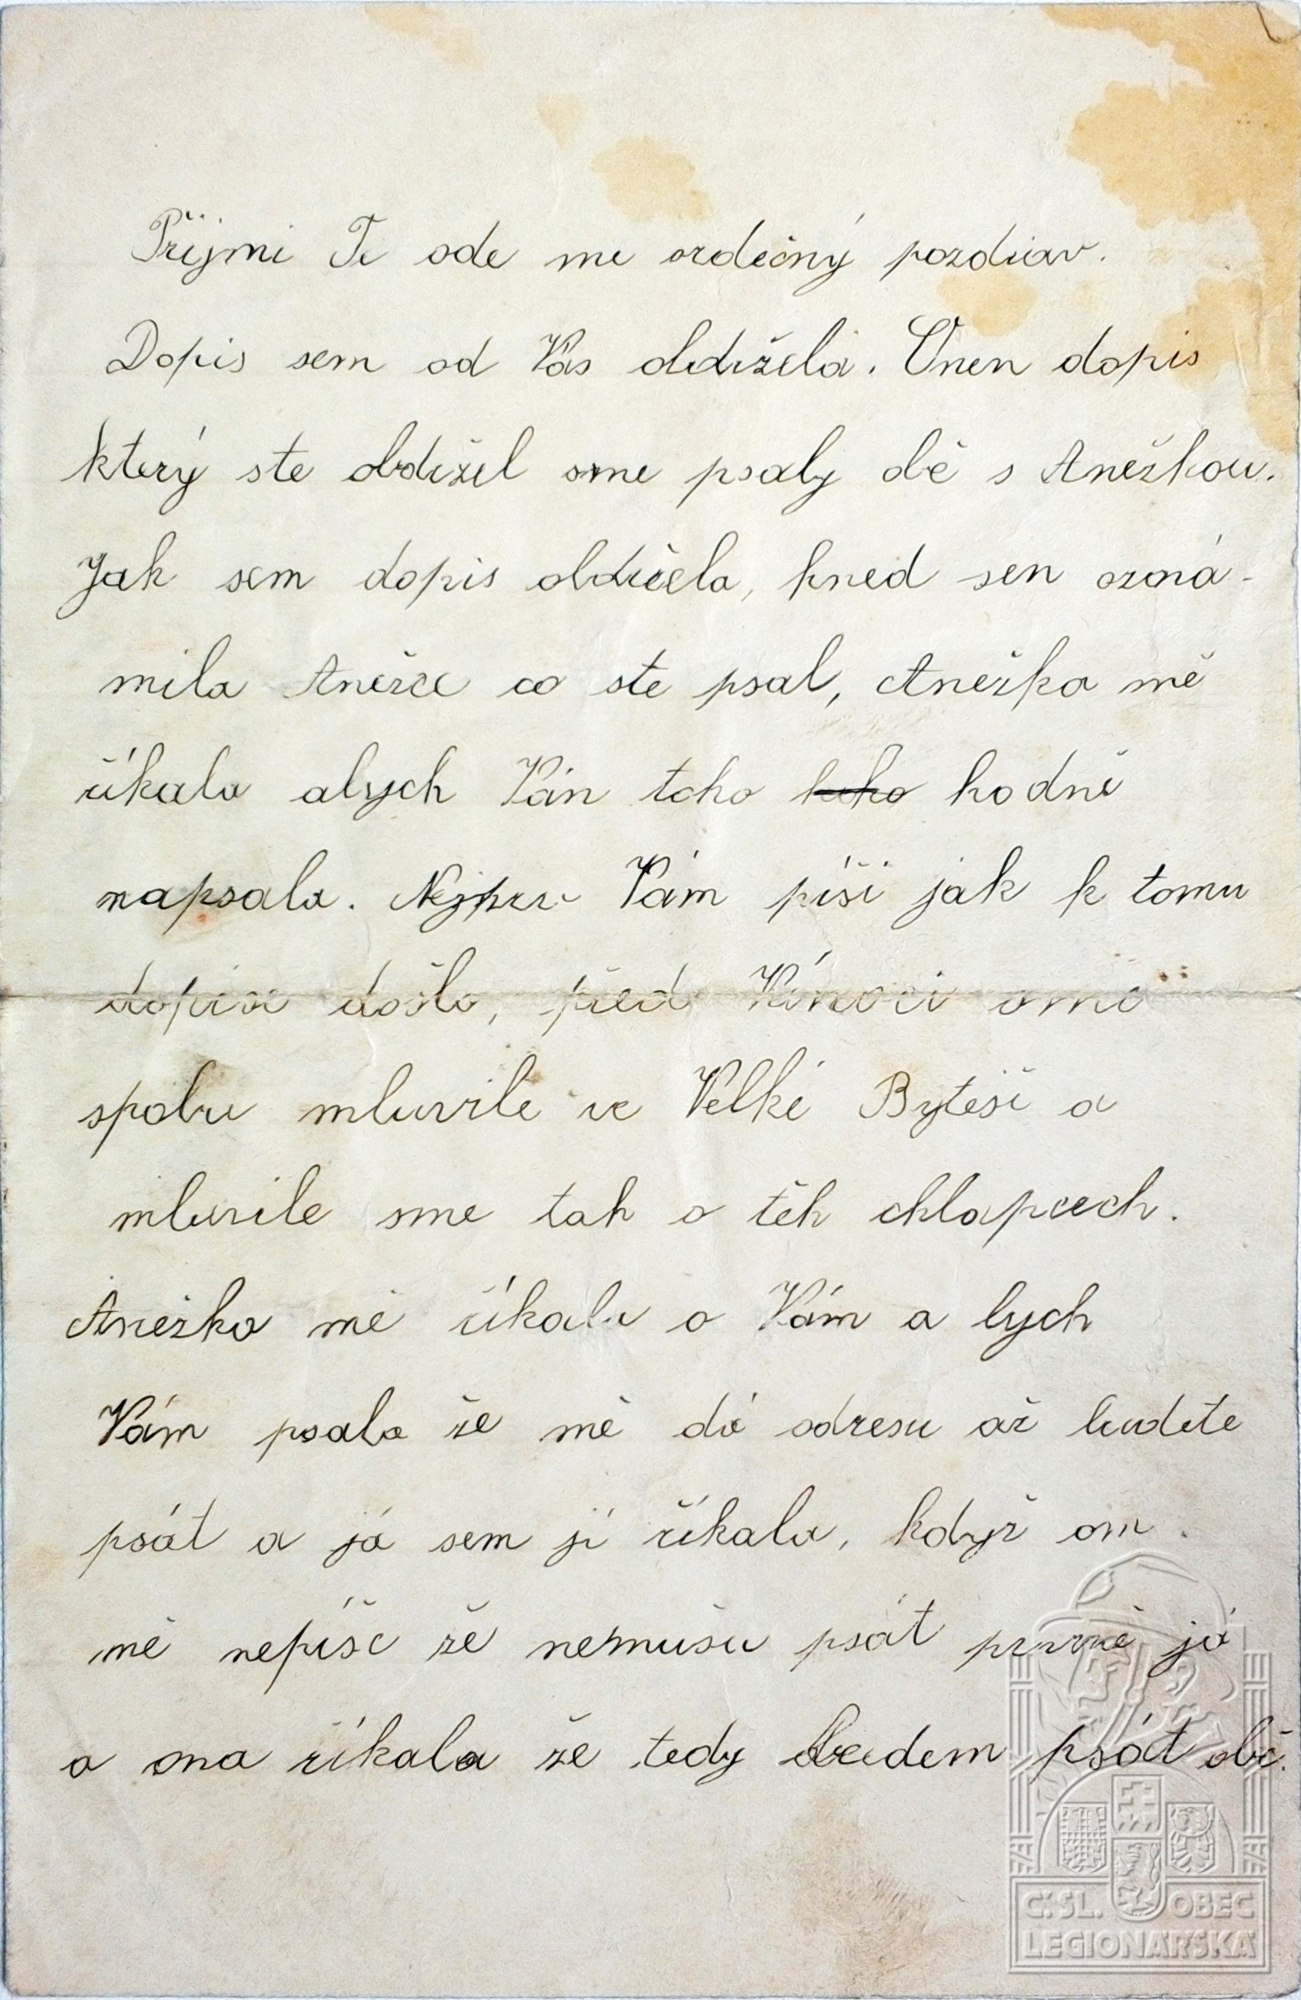 Příjmi Te ode me srdečný pozdrav.
Dopis sem od Vás obdržela. Onen dopis
který ste obdržel sme psaly obě s Anežkou.
Jak sem dopis obdržela, hned sen ozná-
mila Anežce co ste psal, Anežka mě
říkala abych Ván toho hodně
napsala. Nejprv Vám píši jak k tomu
dopisi došlo, před Vánoci sme
spolu mluvile ve Velké Byteši a
mluvile sme tak o těh chlapcech.
Anežka mě říkala o Vám a bych
Vám psala že mě dá adresu až budete
psát a já sem jí říkala, když on
mě nepíše že nemušu psát prvně já
a ona říkala že tedy budem psát obě.
Č. SL. OBEC
LEGIONÁŘSKÁ